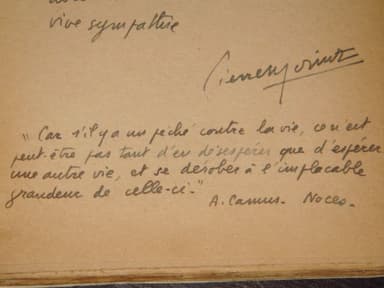 vive sympathie
"Car s'il y a un péché contre la vie, ce n'est
peut-être pas tant d'en désespérer que d'espérer
une autre vie, et se dérober à l'implacable
grandeur de celle-ci."
A. Camus. Noces.